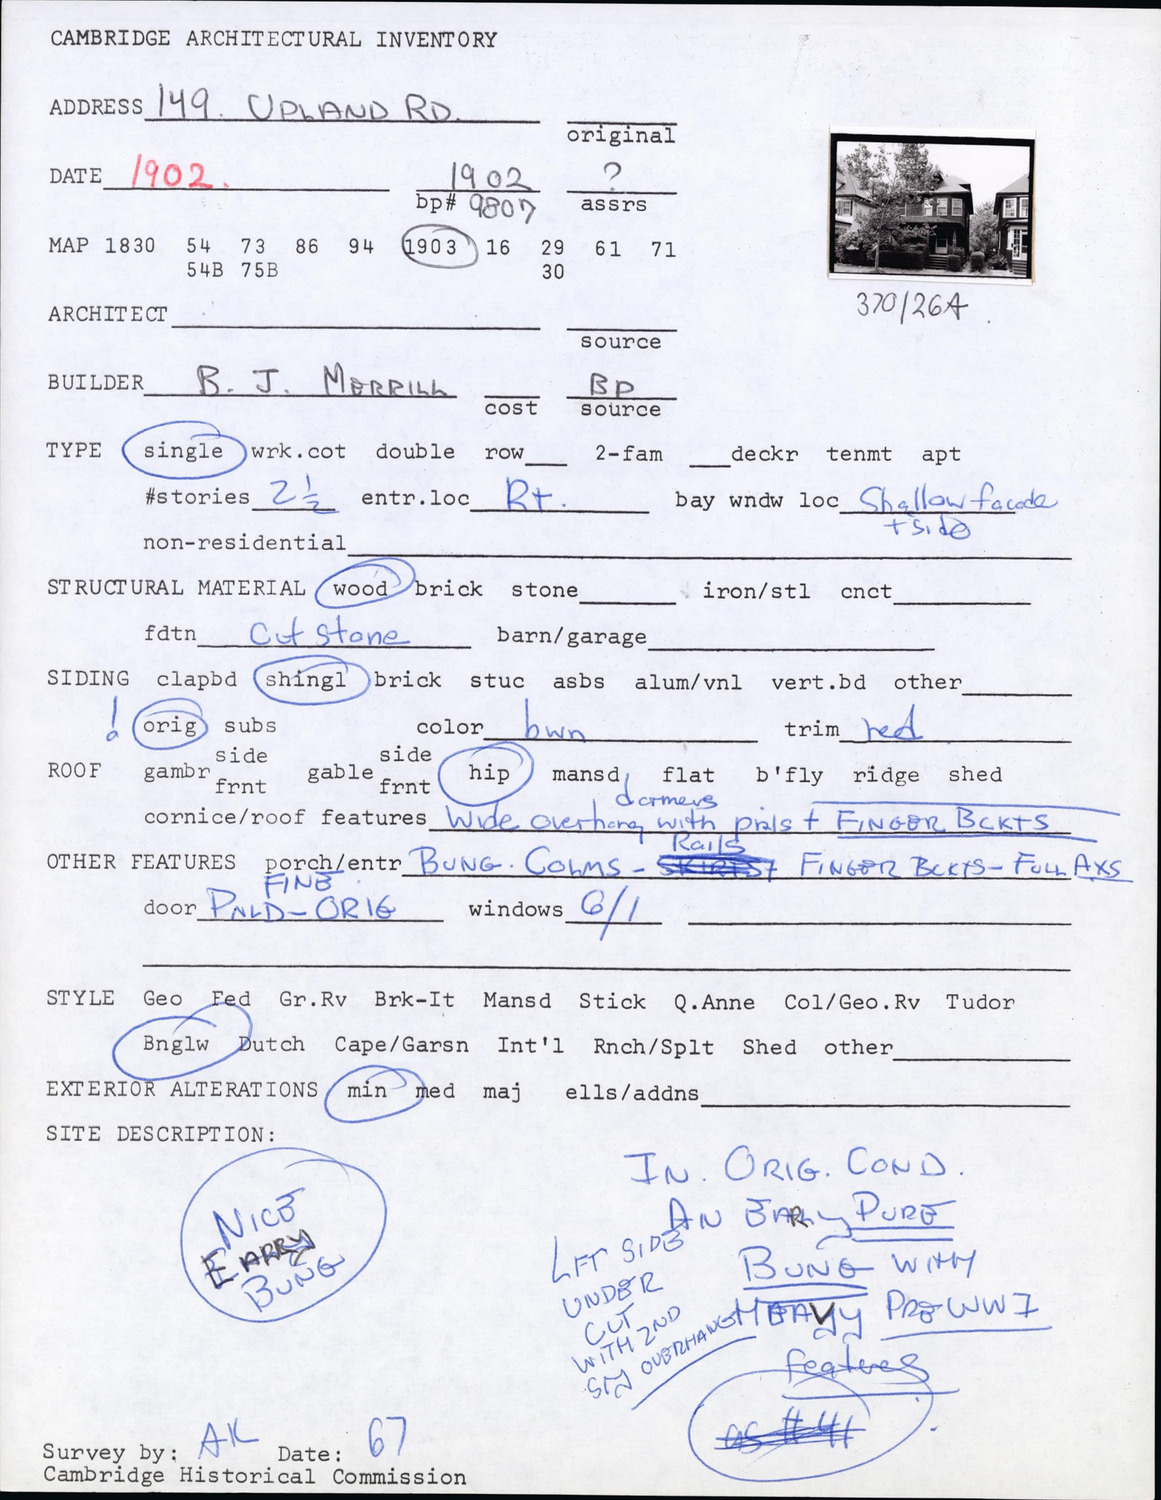 CAMBRIDGE ARCHITECTURAL INVENTORY
ADDRESS 149. UPLAND RD.
original
DATE 1902. 1902 ?
bp# 9807 assrs
MAP 1830 54 73 86 94 1903 16 29 61 71
54B 75B 30
370/26A
ARCHITECT
source
BUILDER B. J. MERRILL BP
cost source
TYPE single wrk.cot double row 2-fam deckr tenmt apt
#stories 2½ entr.loc Rt. bay wndw loc Shallow facade
+ side
non-residential
STRUCTURAL MATERIAL wood brick stone iron/stl cnct
fdtn Cut Stone barn/garage
SIDING clapbd shingl brick stuc asbs alum/vnl vert.bd other
! orig subs color bwn trim red
side side
ROOF gambr gable hip mansd flat b'fly ridge shed
frnt frnt
dormers
cornice/roof features Wide overhang with + FINGER BCKTS
Rails
OTHER FEATURES porch/entr BUNG. COLMS - FINGER BCKTS - FULL AXS
FINE
door PNLD - ORIG windows 6/1
STYLE Geo Fed Gr.Rv Brk-It Mansd Stick Q.Anne Col/Geo.Rv Tudor
Bnglw Dutch Cape/Garsn Int'l Rnch/Splt Shed other
EXTERIOR ALTERATIONS min med maj ells/addns
SITE DESCRIPTION:
NICE
EARLY
BUNG
IN. ORIG. COND.
AN EARLY PURE
BUNG WITH
HEAVY PRE WWI
features
as #41
LFT SIDE
UNDER
CUT
WITH 2ND
STY OVERHANG
Survey by: AK Date: 67
Cambridge Historical Commission